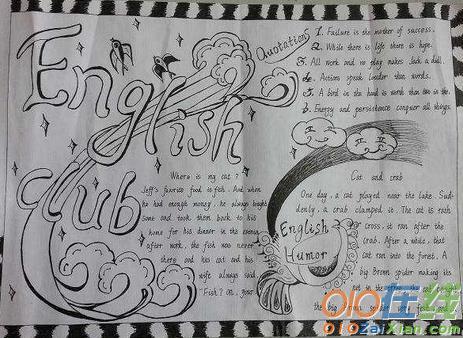 English
club
Quotations
1. Failure is the mother of success.
2. While there is life there is hope.
3. All work and no play makes Jack a dull.
4. Actions speak louder than words.
5. A bird in the hand is worth than two in the
6. Energy and persistence conquer all things.
Where is my cat?
Jeff's favorite food is fish. And when
he had enough money, he always bought
some and took them back to his
home for his dinner in the evening
after work, the fish was never
there and his cat and his
wife always said,
"Fish? on, your
English
Humor
Cat and crab
One day, a cat played near the lake. Sud-
denly, a crab clamped it. The cat is rush
cross, it ran after the
crab. After a while, that
cat ran into the forest. A
big Brown spider making its
net in the
the big spider
010在线
010ZaiXian.com